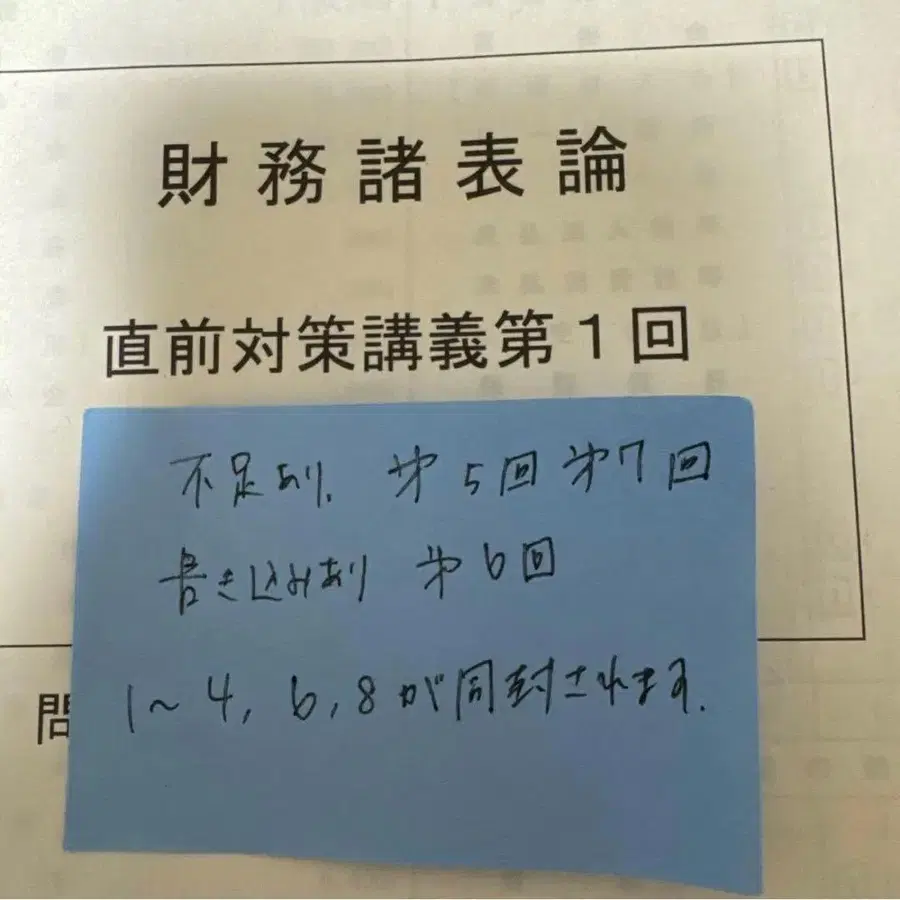 財務諸表論
直前対策講義第1回
不足あり、第5回 第7回
書き込みあり 第6回
1~4, 6, 8が同封されます.
問